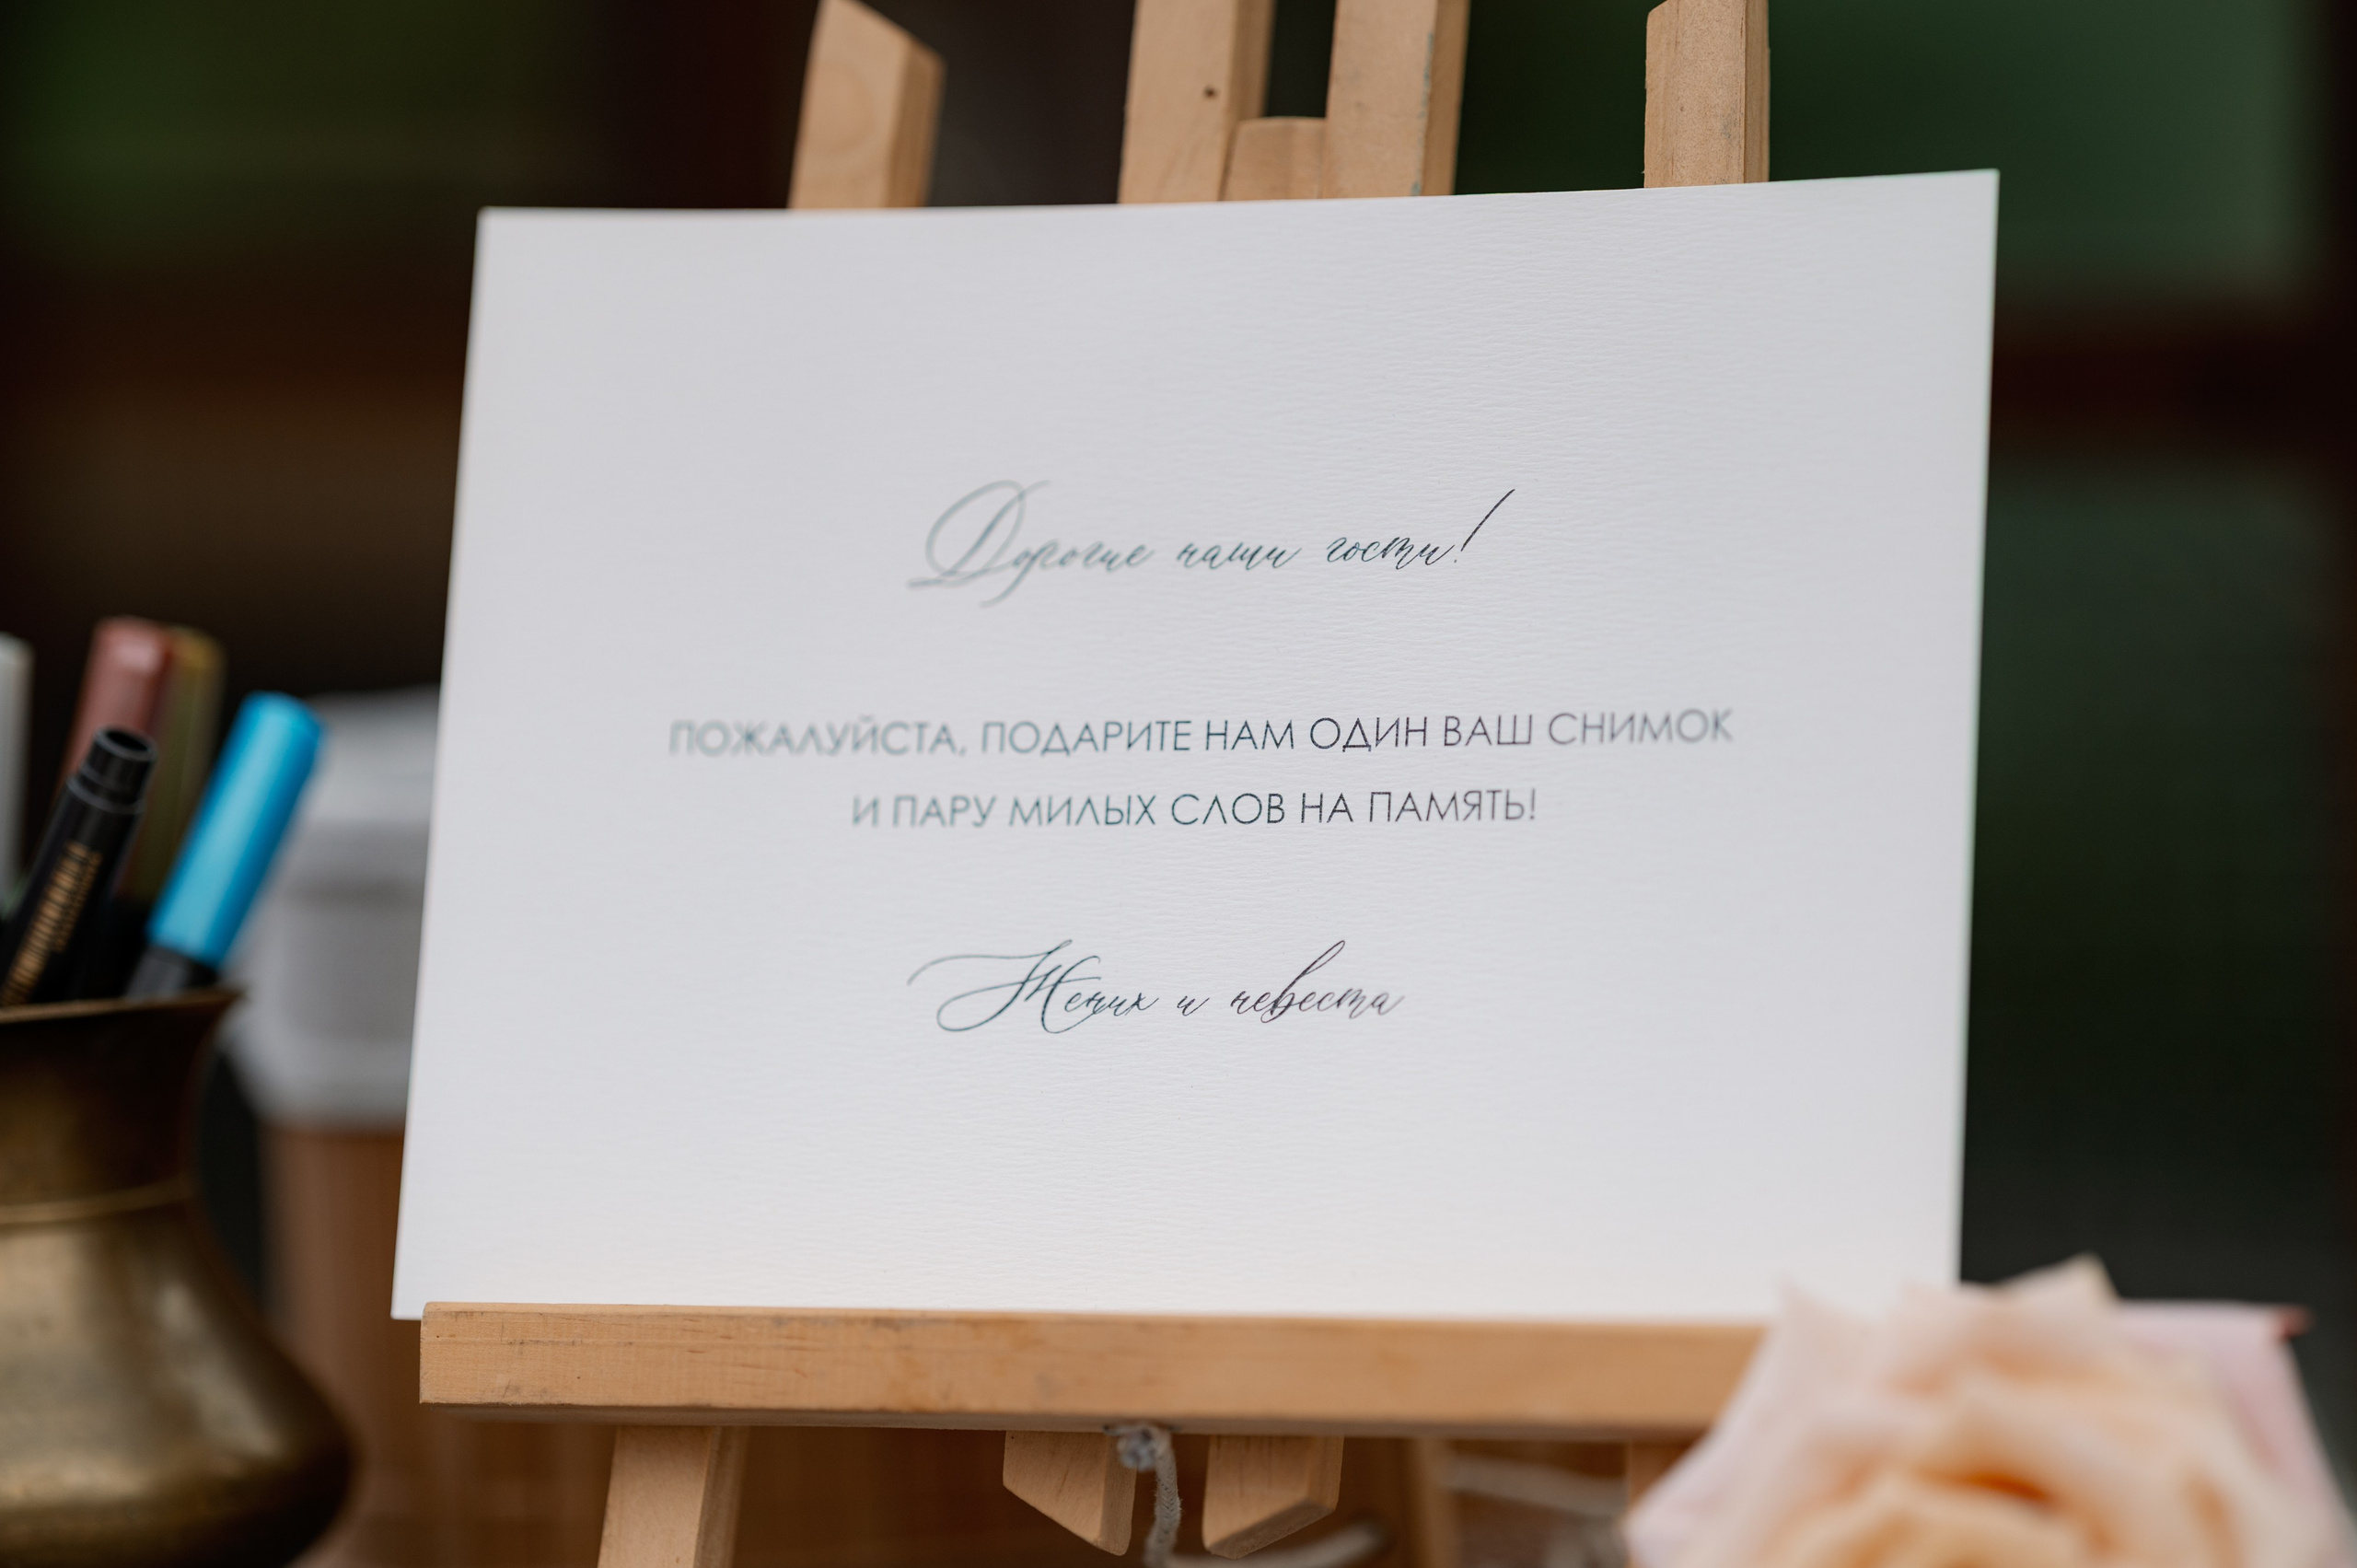 Дорогие наши гости!
ПОЖАЛУЙСТА, ПОДАРИТЕ НАМ ОДИН ВАШ СНИМОК
И ПАРУ МИЛЫХ СЛОВ НА ПАМЯТЬ!
Жених и невеста